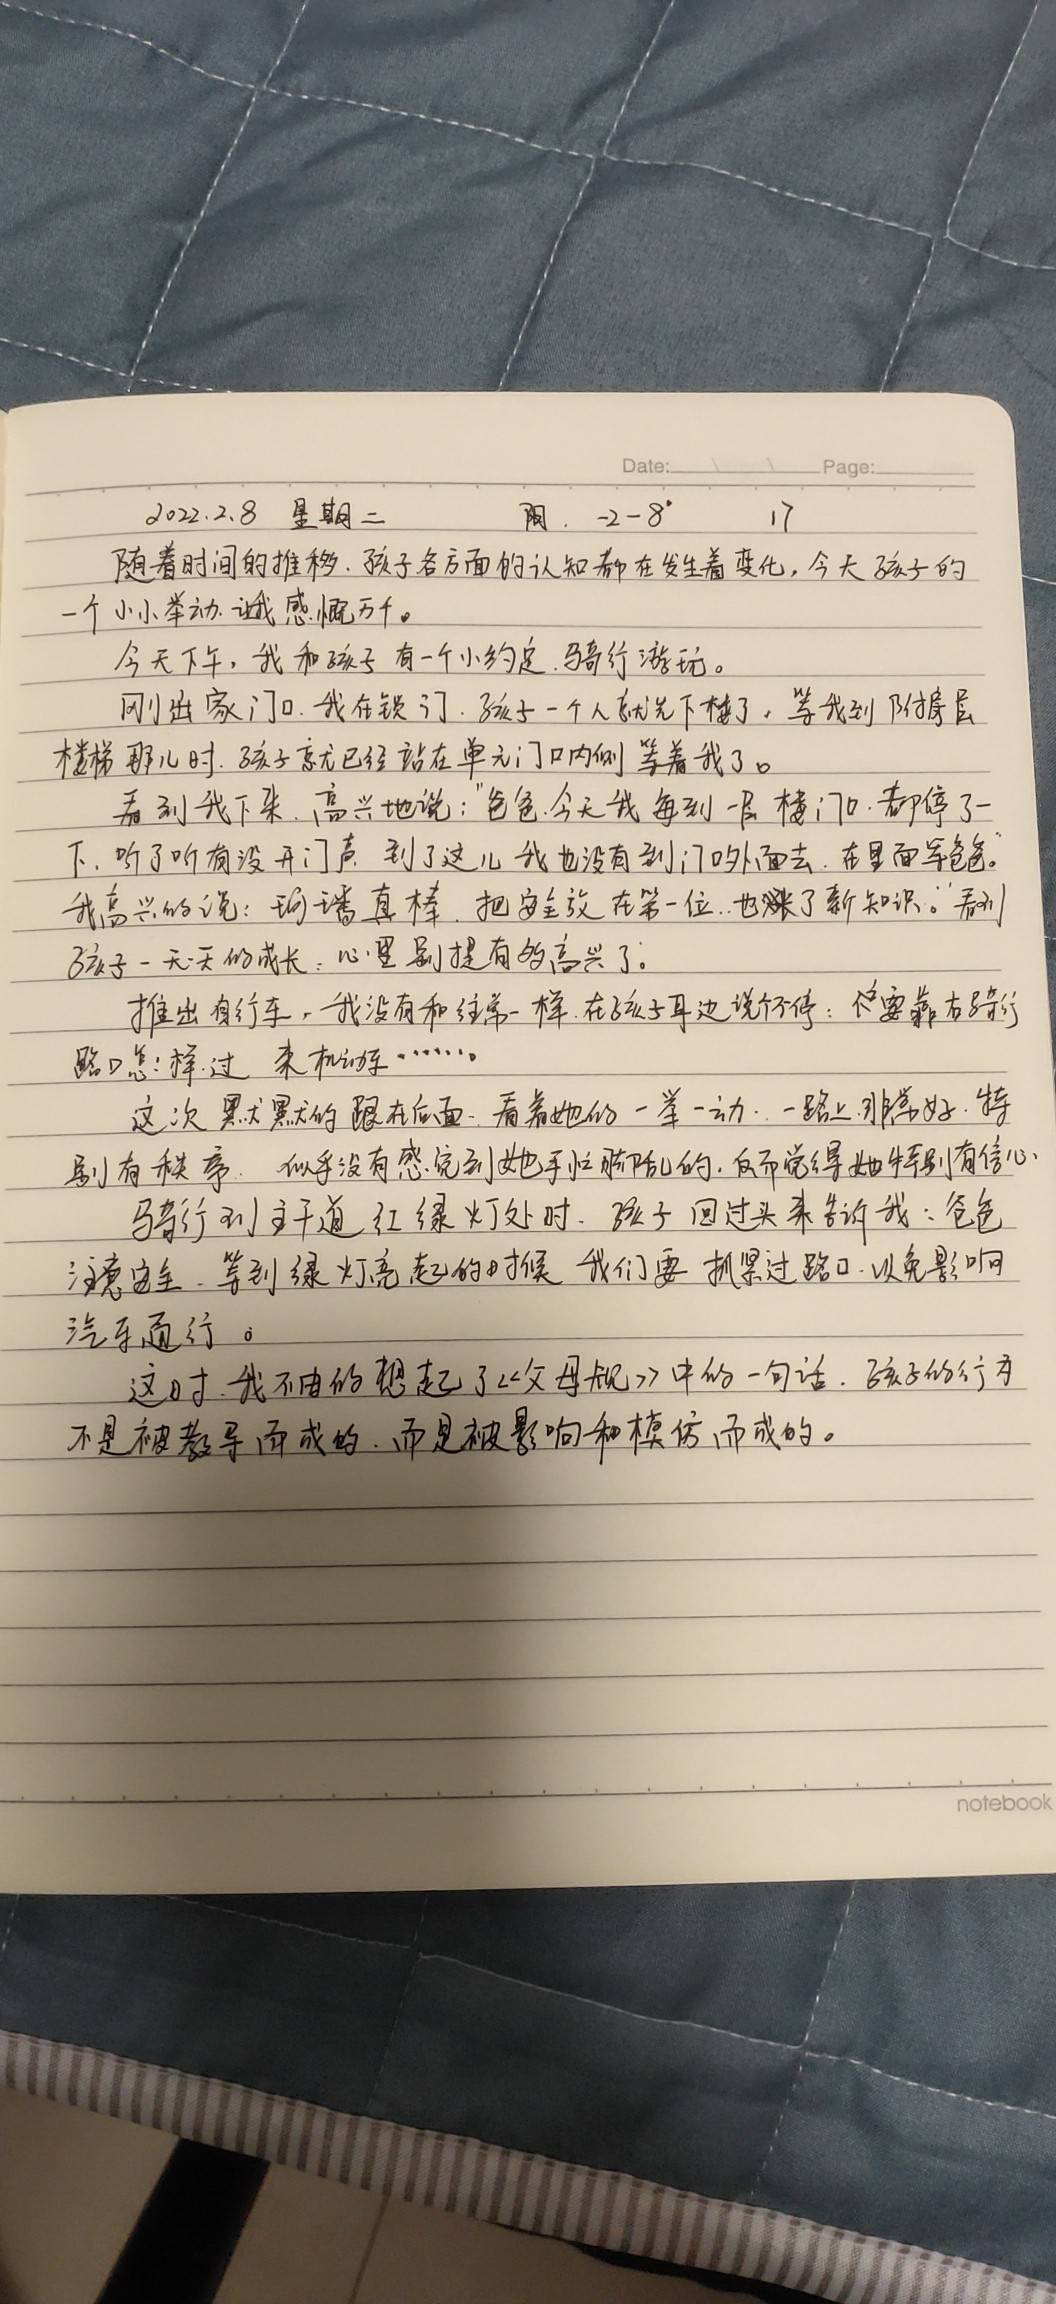 Date: \ / Page:
2022.2.8 星期二 阴. -2-8° 17
随着时间的推移.孩子各方面的认知都在发生着变化,今天孩子的
一个小小举动.让我感慨万千。
今天下午,我和孩子有一个小约定.骑行游玩。
刚出家门口.我在锁门.孩子一个人就先下楼了,等我到附房层
楼梯那儿时.孩子就已经站在单元门口内侧等着我了。
看到我下来.高兴地说:"爸爸.今天我每到一层楼门口.都停了一
下.听了听有没开门声 到了这儿我也没有到门口外面去.在里面等爸爸。"
我高兴的说:真棒.把安全放在第一位..也涨了新知识。"看到
孩子一天天的成长:心里别提有多高兴了。
推出自行车,我没有和往常一样.在孩子耳边说个不停:你要靠右骑行
路口怎:样.过 来机动车.......
这次默默的跟在后面.看着她的一举一动..一路上非常好.特
别有秩序.似乎没有感觉到她手忙脚乱的.反而觉得她特别有信心.
骑行到主干道红绿灯处时.孩子回过头来告诉我:爸爸
注意安全.等到绿灯亮起的时候 我们要抓紧过路口.以免影响
汽车通行。
这时.我不由的想起了<<父母规>>中的一句话.孩子的行为
不是被教导而成的.而是被影响和模仿而成的。
notebook